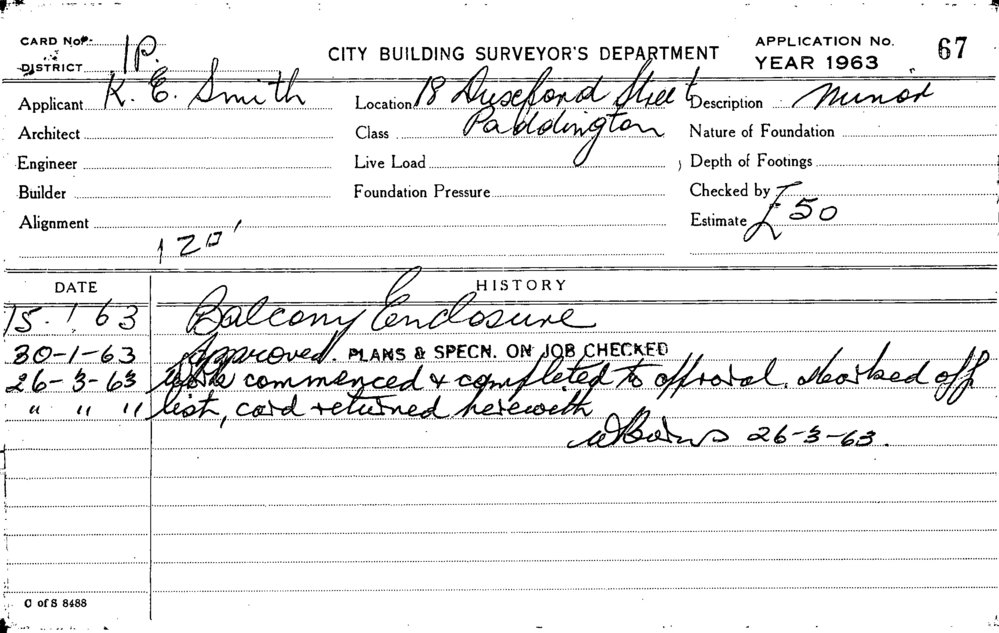 CARD No. 1P.
DISTRICT
CITY BUILDING SURVEYOR'S DEPARTMENT
APPLICATION No. 67
YEAR 1963
Applicant K. E. Smith
Location 18 Street
Description Minor
Architect
Class Paddington
Nature of Foundation
Engineer
Live Load
Depth of Footings
Builder
Foundation Pressure
Checked by
Alignment
Estimate £50
120'
DATE HISTORY
15. 1 63 Balcony Enclosure
30-1-63 Approved. PLANS & SPECN. ON JOB CHECKED
26-3-63 Work commenced & completed to approval. Marked off
" " " list, card returned herewith
26-3-63.
C of S 8488